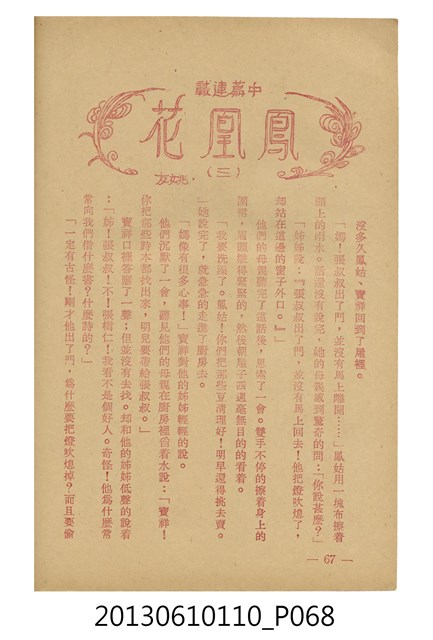 中篇連載
鳳凰花
(三)
姚放
沒多久鳳姑、寶祥回到了屋裡。
「媽！張叔叔出了門，並沒有馬上離開……」鳳姑用一塊布擦着
頭上的雨水。話還沒有說完，她的母親感到驚奇的問：「你說甚麼？」
「姊姊說：『張叔叔出了門，並沒有馬上回去！他把燈吹熄了，
却站在這邊的窗子外口。』」
他們的母親聽完了這話後，思索了一會。雙手不停的擦着身上的
圍裙，眉頭皺得緊緊的，然後朝屋子四週毫無目的的看着。
「我要洗澡了。鳳姑！你們把那些豆清理好！明早還得挑去賣。
」她說完了，就急急的走進了廚房去。
「媽像有很多心事！」寶祥對他的姊姊輕輕的說。
他們沉默了一會，聽見他們的母親在廚房裡倒着水說：「寶祥！
你把那些詩本都找出來，明兒要帶給張叔叔。」
寶祥口裡答應了一聲；但並沒有去找。却和他的姊姊低聲的說着
：「姊！張叔叔！不！張樹仁！我看不是個好人。奇怪！他爲什麼常
常向我們借什麼書？什麼詩的？」
「一定有古怪！剛才他出了門，爲什麼要把燈吹熄掉？而且要偷
— 67 —
20130610110_P068